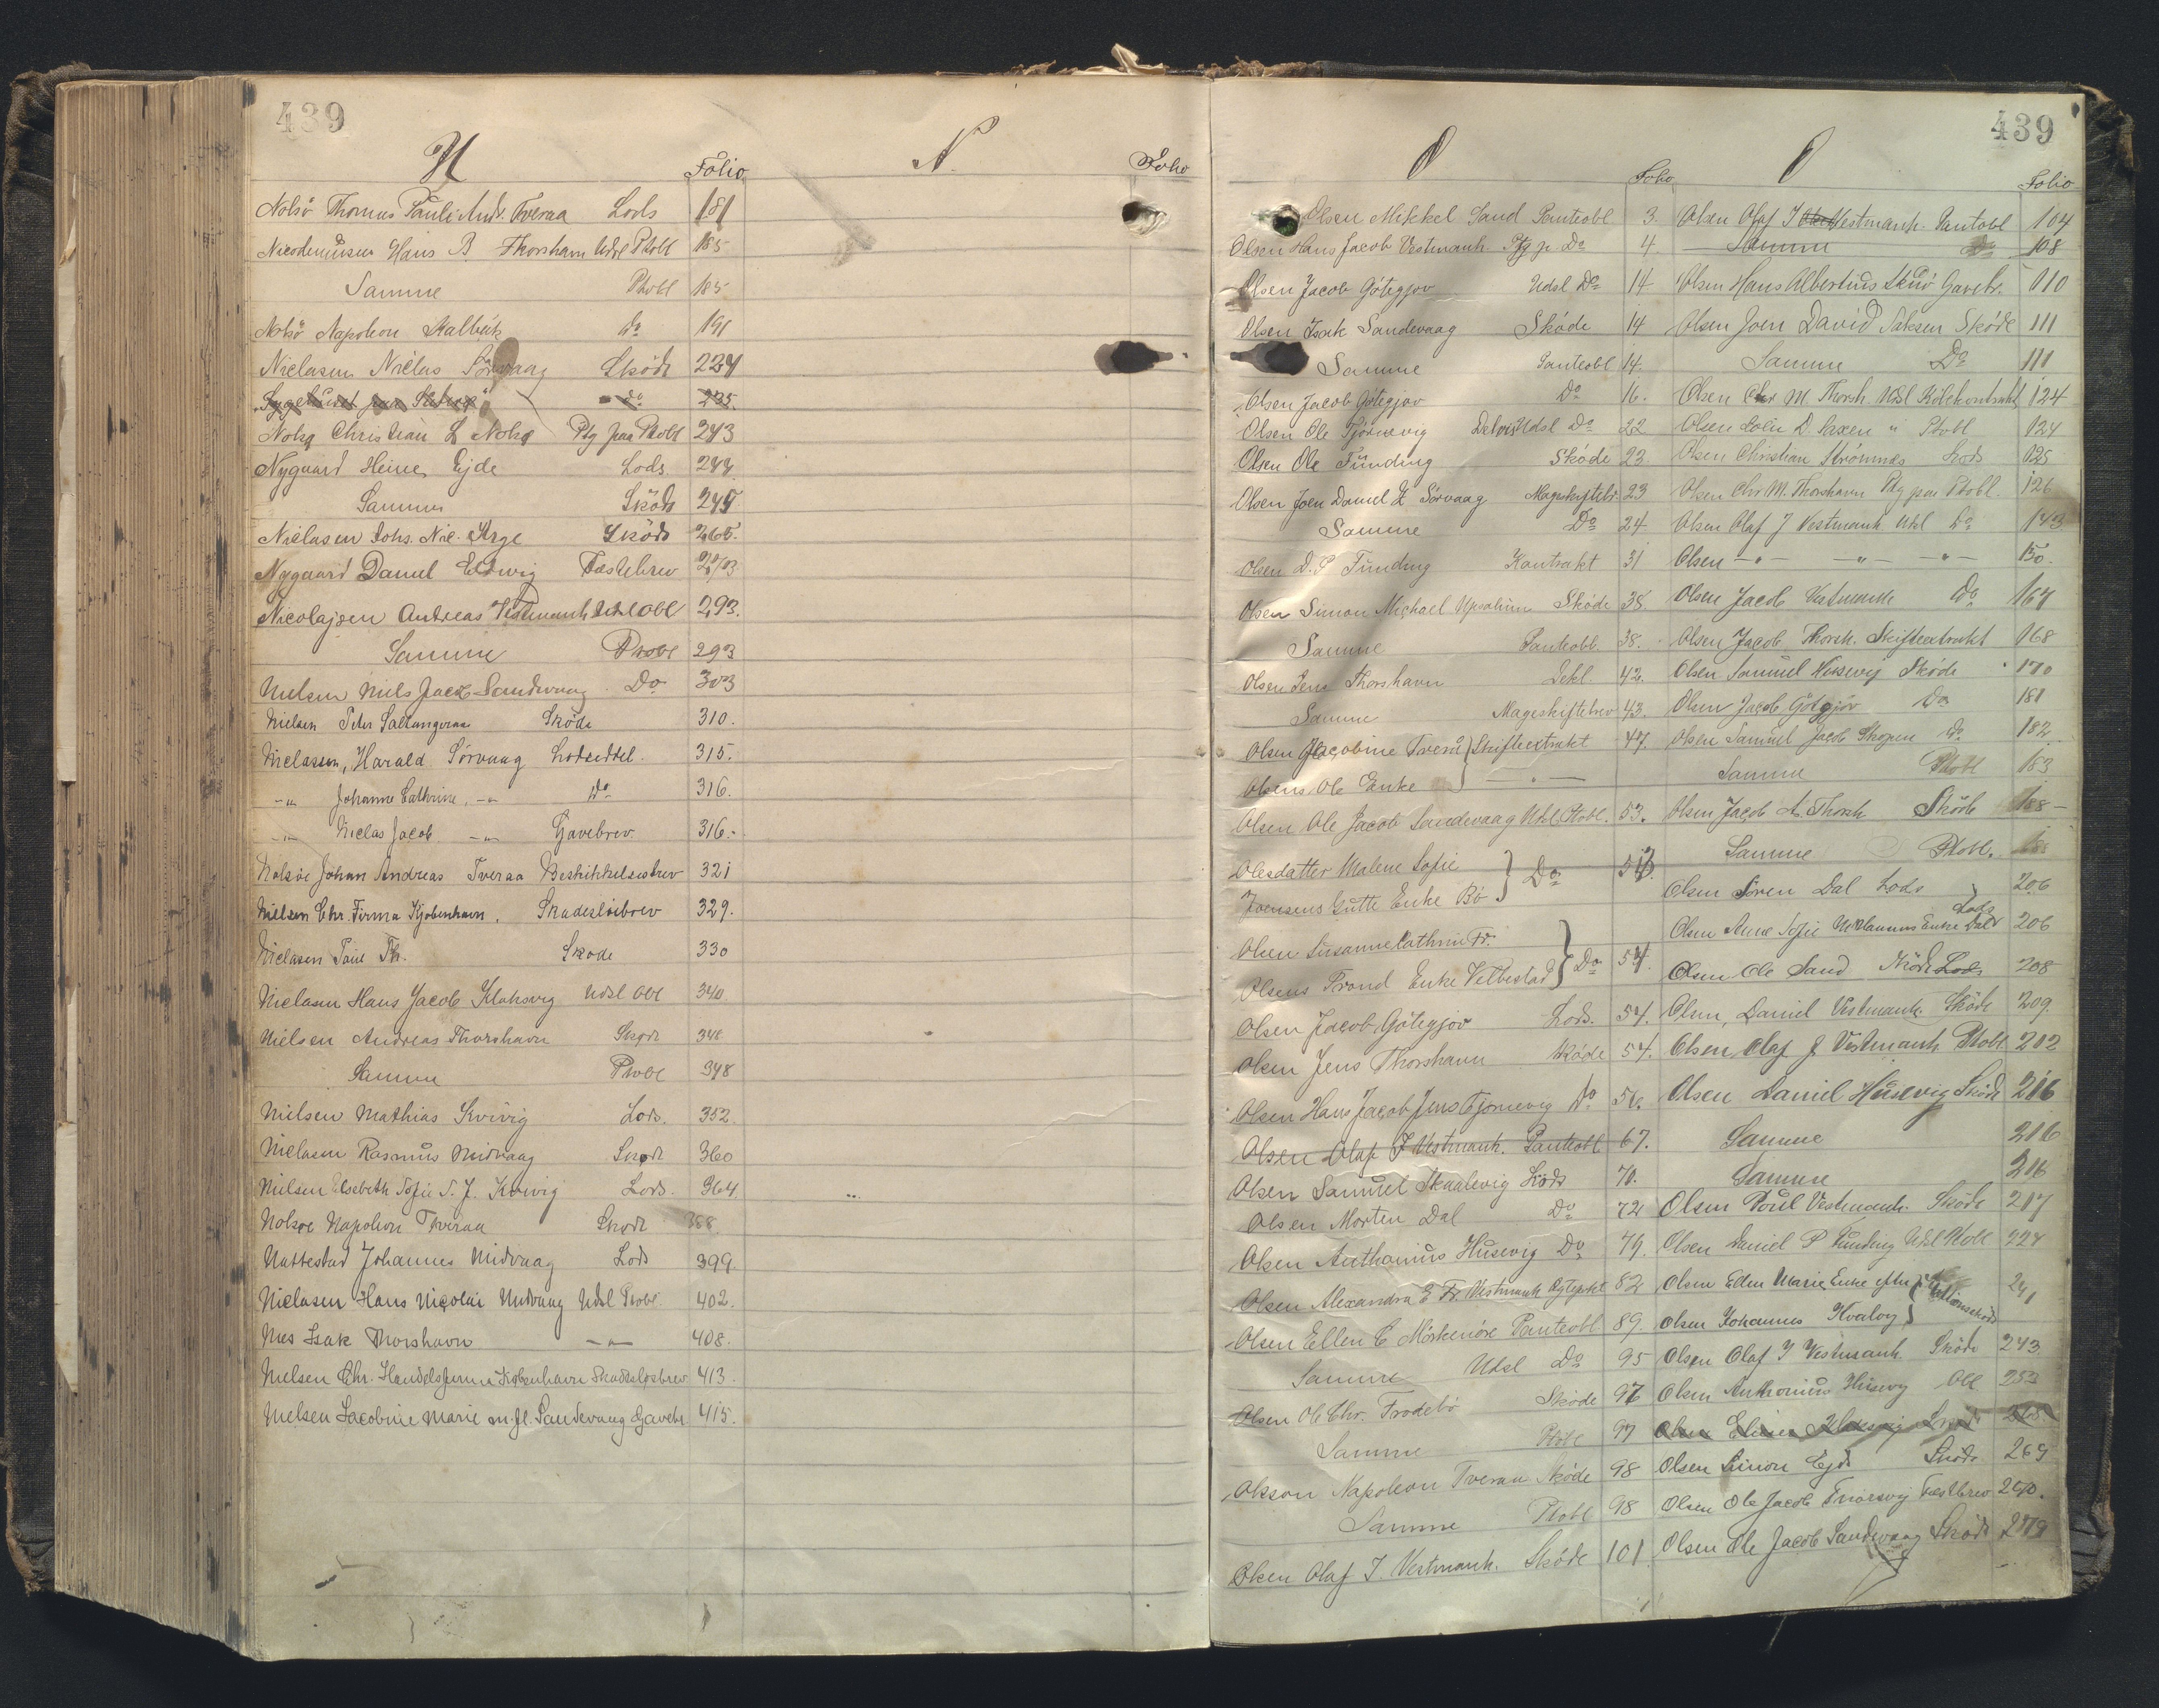 439
N
Folio
Nolsö Thomas Pauli Andr. Tveraa Lods 181
Nicodemussen Hans B. Thorshavn Udsl Ptobl 185
Samme Ptobl 185
Nolsö Napoleon Kalbak Do 191
Niclasen Niclas Sörvaag Sködе 234
235.
Nolsö Christian L Nolsö Ptg paa Ptobl 243
Nygaard Heine Ejde Lods 244
Samme Sköde 245
Niclasen Johs. Nic. Arge Sköde 265.
Nygaard Daniel Ludwig Fæstebrev
Nicolajsen Andreas Vestmanh Udsl Obl 293.
Samme Ptobl 293
Nielsen Niels Jacob Sandevaag Do 303
Nielsen Peter Saltangeraa Sköde 310.
Niclassen, Harald Sörvaag Lodseddel. 315.
-"- Johanne Cathrine, -"- Do 316.
-"- Niclas Jacob -"- Gavebrev 316.
Nolsöe Johan Andreas Tveraa Beskikkelsesbrev 321
Nielsen Chr. Firma Kjöbenhavn. Skadeslösbrev 329.
Niclasen Poul Th. Sköde 330
Niclasen Hans Jacob Klaksvig Udsl Obl 340
Nielsen Andreas Thorshavn Sköde 348
Samme Ptobl 348
Nielsen Mathias Kvivig Lods. 352
Niclasen Rasmus Midvaag Sköde 360
Nielsen Elsebeth Sofie S. J. Kvivig Lods. 364
Nolsöe Napoleon Tveraa Sköde 388.
Nattestad Johannes Midvaag Lods 399.
Niclasen Hans Nicolai Midvaag Udsl Ptobl. 402.
Nies Isak Thorshavn -"- 408.
Nielsen Chr. Handelsfirma Köbenhavn Skadeslösbrev 413.
Nielsen Jacobine Marie m. fl. Sandevaag Gavebr 415.
N.
Folio
O
Folio
Olsen Mikkel Sand Panteobl 3.
Olsen Hans Jacob Vestmanh. Ptg p. Do 4.
Olsen Jacob Götegjov Udsl Do 14
Olsen Isak Sandevaag Sköde 14
Samme Panteobl 14.
Olsen Jacob Götegjov Do 16.
Olsen Ole Tjörnevig Delvis Udsl Do 22
Olsen Ole Funding Sköde 23.
Olsen Joen Daniel Z Sörvaag Mageskiftebr 23
Samme Do 24
Olsen D. P. Funding Kontrakt 31
Olsen Simon Michael Sköde 38
Samme Panteobl. 38.
Olsen Jens Thorshavn 42.
Samme Mageskiftebrev 43.
Olsen Jacobine Tveraa } Skifteextrakt 47.
Olsens Ole Enke } -"-
Olsen Ole Jacob Sandevaag Udsl Ptobl. 53.
Olesdatter Malene Sofie } Do 53.
Joensens Gutte Enke Bö }
Olsen Susanne Cathrine Fr. } Do 54.
Olsens Trond Enke Velbestad }
Olsen Jacob Götegjov Lods. 54.
Olsen Jens Thorshavn Sköde 54.
Olsen Hans Jacob Jens Tjörnevig Do 56.
Olsen Olaf J Vestmanh. Panteobl 67.
Olsen Samuel Skaalevig Lods 70.
Olsen Morten Dal Do 72
Olsen Anthonius Husevig Do 79.
Olsen Alexandra E Fr. Vestmanh Ægtepkt 82
Olsen Ellen C Morkenöre Panteobl 89.
Samme Udsl Do 95
Olsen Ole Chr. Frodebö Sköde 96
Samme Ptobl 97
Olsson Napoleon Tveraa Sköde 98
Samme Ptobl 98
Olsen Olaf J. Vestmanh. Sköde 101
439
O
Folio
Olsen Olaf J Vestmanh. Pantobl 104
Samme Do 108
Olsen Hans Albertius Skuö Gavebr. 110
Olsen Joen David Saksen Sköde 111
Samme Do 111
Olsen Chr M. Thorsh. Udsl Köbekontrakt 124
Olsen Joen D Saxen " Ptobl 124
Olsen Christian Strömnæs Lods 125
Olsen Chr M. Thorshavn Ptg paa Ptobl. 126
Olsen Olaf J Vestmanh Udsl Do 143
Olsen -"- -"- -"- 150.
Olsen Jacob Vestmanh Do 164
Olsen Jacob Thorsh. Skifteextrakt 168
Olsen Samuel Husevig Sköde 170
Olsen Jacob Götegjov Do 181
Olsen Samuel Jacob Skopen Do 182
Samme Ptobl 183
Olsen Jacob A. Thorsh Sköde 188
Samme Ptobl. 188
Olsen Sören Dal Lods 206
Olsen Anne Sofie Enke Dal Lods 206
Olsen Ole Sand Sköde Lods 208
Olsen, Daniel Vestmanh. Sköde 209.
Olsen Olaf J Vestmanh Ptobl 202
Olsen Daniel Husevig Sköde 216
Samme 216
Samme 216
Olsen Poul Vestmanh. Sköde 217
Olsen Daniel P Funding Udsl Ptobl 224
Olsen Ellen Marie Enke efter } Auktionssköde 241
Olsen Johannes Kvalvig }
Olsen Olaf J Vestmanh. Sköde 243
Olsen Anthonius Husevig Obl 253
Olsen
Olsen Simon Ejde Sköde 269
Olsen Ole Jacob Fæstbrev 270.
Olsen Ole Jacob Sandevaag Sköde 279